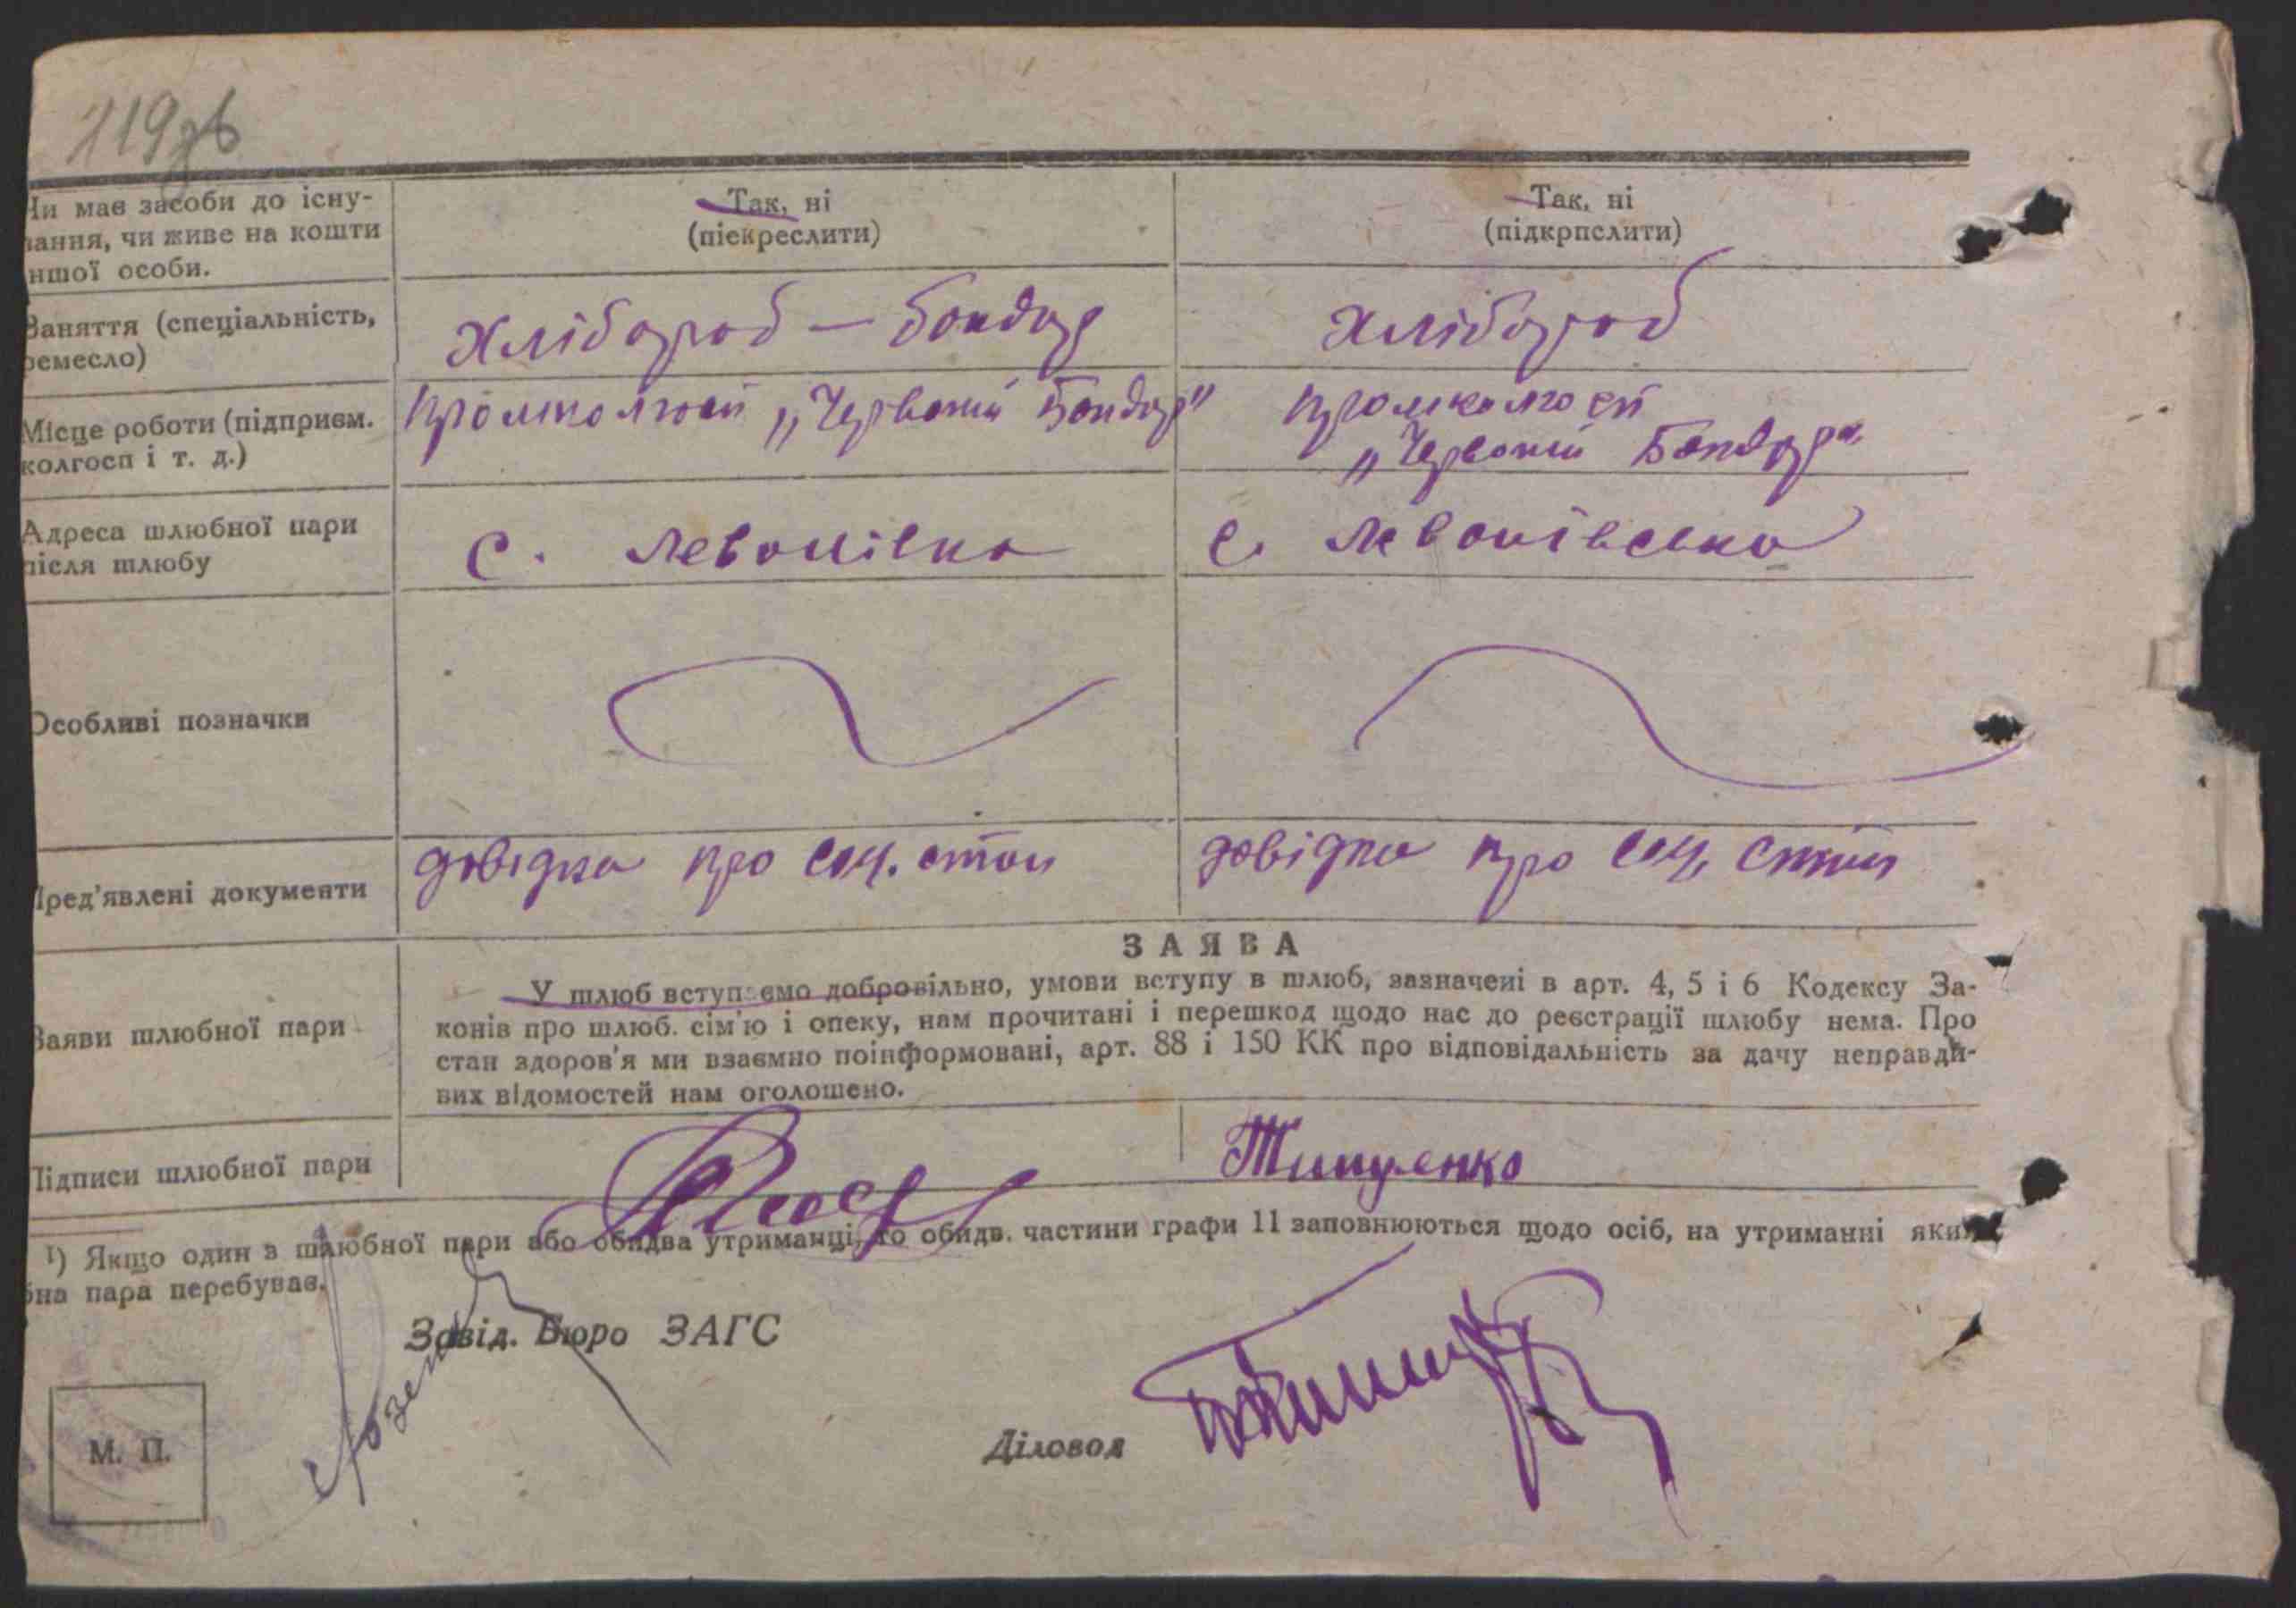 119зв
Чи має засоби до існу-
вання, чи живе на кошти
іншої особи.
Так, ні
(піекреслити)
Так, ні
(підкрпслити)
Заняття (спеціальність,
ремесло)
Хлібороб — бондар
Хлібороб
Місце роботи (підприєм.
колгосп і т. д.)
Промколгосп „Червоний Бондар"
Промколгосп
„Червоний Бондар"
Адреса шлюбної пари
після шлюбу
с. Левонівка
с. Левонівська
Особливі позначки
Пред'явлені документи
довідка про соц. стан
довідка про соц. стан
Заяви шлюбної пари
ЗАЯВА
У шлюб вступаємо добровільно, умови вступу в шлюб, зазначені в арт. 4, 5 і 6 Кодексу За-
конів про шлюб. сім'ю і опеку, нам прочитані і перешкод щодо нас до реєстрації шлюбу нема. Про
стан здоров'я ми взаємно поінформовані, арт. 88 і 150 КК про відповідальність за дачу неправди-
вих відомостей нам оголошено.
Підписи шлюбної пари
¹) Якщо один з шлюбної пари або обидва утриманці, то обидв. частини графи 11 заповнюються щодо осіб, на утриманні яких
бна пара перебуває.
Завід. Бюро ЗАГС
М. П.
Діловод